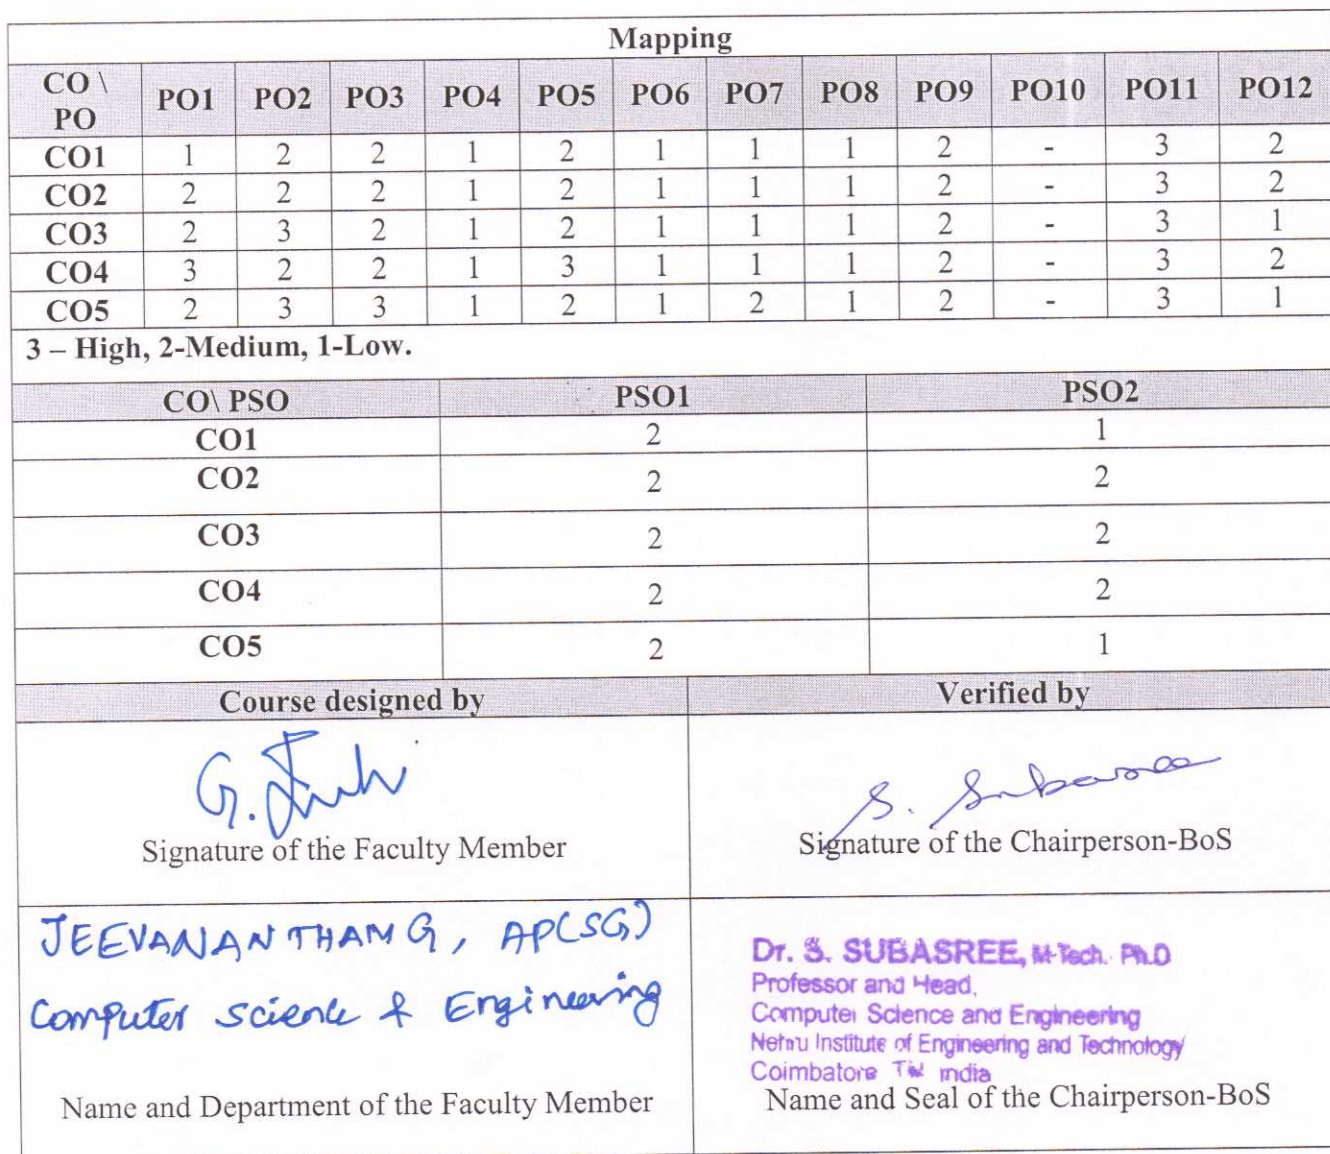 Mapping
CO \ PO PO1 PO2 PO3 PO4 PO5 PO6 PO7 PO8 PO9 PO10 PO11 PO12
CO1 1 2 2 1 2 1 1 1 2 - 3 2
CO2 2 2 2 1 2 1 1 1 2 - 3 2
CO3 2 3 2 1 2 1 1 1 2 - 3 1
CO4 3 2 2 1 3 1 1 1 2 - 3 2
CO5 2 3 3 1 2 1 2 1 2 - 3 1
3 – High, 2-Medium, 1-Low.
CO\ PSO PSO1 PSO2
CO1 2 1
CO2 2 2
CO3 2 2
CO4 2 2
CO5 2 1
Course designed by Verified by
G.
S. Subasree
Signature of the Faculty Member
Signature of the Chairperson-BoS
JEEVANANTHAM G, AP(SG)
Computer science & Engineering
Name and Department of the Faculty Member
Dr. S. SUBASREE, M-Tech. Ph.D
Professor and Head,
Computer Science and Engineering
Nehru Institute of Engineering and Technology
Coimbatore TN India
Name and Seal of the Chairperson-BoS